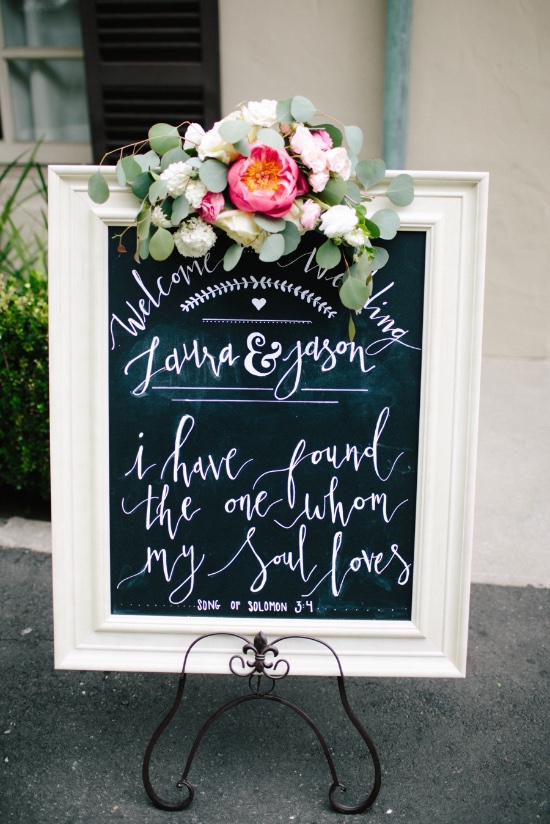 Welcome Wedding
Laura & Jason
i have found
the one whom
my soul loves
SONG OF SOLOMON 3:4